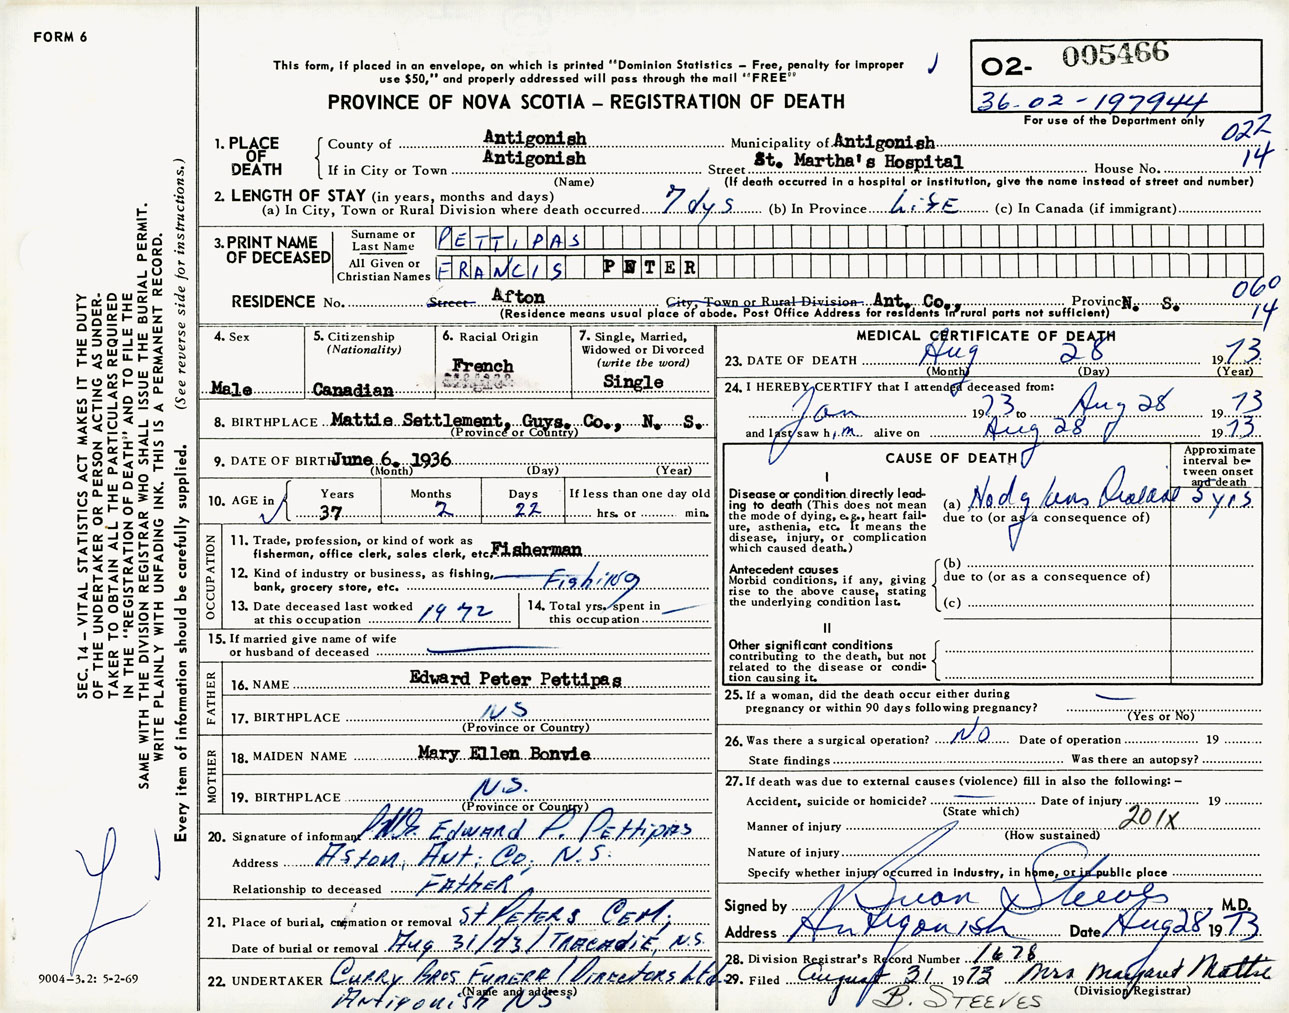 FORM 6
This form, if placed in an envelope, on which is printed "Dominion Statistics – Free, penalty for improper
use $50," and properly addressed will pass through the mail "FREE"
PROVINCE OF NOVA SCOTIA – REGISTRATION OF DEATH
O2- 005466
36-02-197944
For use of the Department only
022
14
1. PLACE OF DEATH
County of Antigonish Municipality of Antigonish
If in City or Town Antigonish Street St. Martha's Hospital House No.
(Name) (If death occurred in a hospital or institution, give the name instead of street and number)
2. LENGTH OF STAY (in years, months and days)
(a) In City, Town or Rural Division where death occurred 7 dys (b) In Province LIFE (c) In Canada (if immigrant)
3. PRINT NAME OF DECEASED
Surname or Last Name PETTIPAS
All Given or Christian Names FRANCIS PETER
060
14
RESIDENCE No. Street Afton City, Town or Rural Division Ant. Co., Province N. S.
(Residence means usual place of abode. Post Office Address for residents in rural parts not sufficient)
4. Sex Male
5. Citizenship (Nationality) Canadian
6. Racial Origin French
7. Single, Married, Widowed or Divorced (write the word) Single
8. BIRTHPLACE Mattie Settlement, Guys. Co., N. S.
(Province or Country)
9. DATE OF BIRTH June 6, 1936
(Month) (Day) (Year)
10. AGE in Years 37 Months 2 Days 22 If less than one day old hrs. or min.
OCCUPATION
11. Trade, profession, or kind of work as
fisherman, office clerk, sales clerk, etc. Fisherman
12. Kind of industry or business, as fishing,
bank, grocery store, etc. Fishing
13. Date deceased last worked
at this occupation 1972
14. Total yrs. spent in
this occupation
15. If married give name of wife
or husband of deceased
FATHER
16. NAME Edward Peter Pettipas
17. BIRTHPLACE NS
(Province or Country)
MOTHER
18. MAIDEN NAME Mary Ellen Bonvie
19. BIRTHPLACE N.S.
(Province or Country)
20. Signature of informant Edward P. Pettipas
Address Afton, Ant. Co, N.S.
Relationship to deceased FATHER
21. Place of burial, cremation or removal St PETERS CEM;
Date of burial or removal Aug 31/73/ TRACADIE, N.S.
22. UNDERTAKER CURRY BROS FUNERAL DIRECTORS Ltd.
Antigonish NS
(Name and address)
MEDICAL CERTIFICATE OF DEATH
23. DATE OF DEATH Aug 28 1973
(Month) (Day) (Year)
24. I HEREBY CERTIFY that I attended deceased from:
Jan 1973 to Aug 28 1973
and last saw him alive on Aug 28 1973
CAUSE OF DEATH
Approximate interval between onset and death
I
Disease or condition directly lead-
ing to death (This does not
mean the mode of dying, e.g., heart fail-
ure, asthenia, etc. It means the
disease, injury, or complication
which caused death.)
(a) Hodgkins Disease 5 yrs
due to (or as a consequence of)
Antecedent causes
Morbid conditions, if any, giving
rise to the above cause, stating
the underlying condition last.
(b)
due to (or as a consequence of)
(c)
II
Other significant conditions
contributing to the death, but not
related to the disease or condi-
tion causing it.
25. If a woman, did the death occur either during
pregnancy or within 90 days following pregnancy?
(Yes or No)
26. Was there a surgical operation? No Date of operation 19
State findings Was there an autopsy?
27. If death was due to external causes (violence) fill in also the following: –
Accident, suicide or homicide? Date of injury 19
(State which)
Manner of injury 201X
(How sustained)
Nature of injury
Specify whether injury occurred in industry, in home, or in public place
Signed by Steeves M.D.
Address Antigonish Date Aug 28 1973
28. Division Registrar's Record Number 1678
29. Filed August 31 1973 Mrs Margaret Mattie
(Division Registrar)
B. STEEVES
SEC. 14 – VITAL STATISTICS ACT MAKES IT THE DUTY
OF THE UNDERTAKER OR PERSON ACTING AS UNDER-
TAKER TO OBTAIN ALL THE PARTICULARS REQUIRED
IN THE "REGISTRATION OF DEATH" AND TO FILE THE
SAME WITH THE DIVISION REGISTRAR WHO SHALL ISSUE THE BURIAL PERMIT.
WRITE PLAINLY WITH UNFADING INK. THIS IS A PERMANENT RECORD.
Every item of information should be carefully supplied. (See reverse side for instructions.)
9004-3.2: 5-2-69